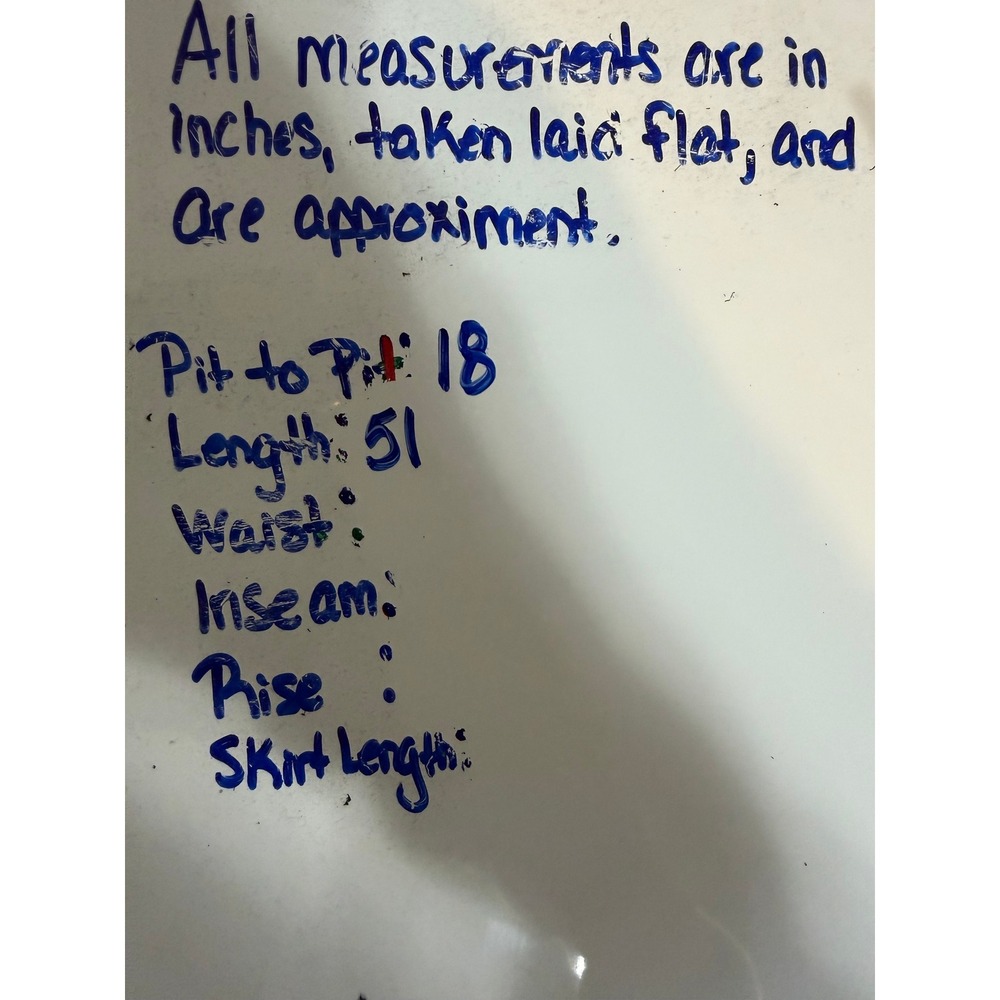 All measurements are in
inches, taken laid flat, and
are approximent.
Pit to Pit: 18
Length: 51
Waist:
Inseam:
Rise :
Skirt Length: